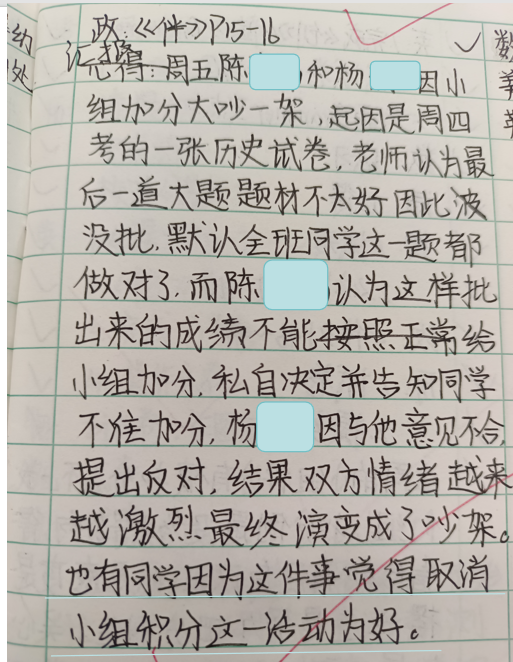 政:《伴》P15-16
汇报: 周五陈 和杨 因小
组加分大吵一架,起因是周四
考的一张历史试卷,老师认为最
后一道大题题材不太好因此
没批,默认全班同学这一题都
做对了,而陈 认为这样批
出来的成绩不能按照正常给
小组加分,私自决定并告知同学
不准加分,杨 因与他意见不合,
提出反对,结果双方情绪越来
越激烈最终演变成了吵架。
也有同学因为这件事觉得取消
小组积分这一活动为好。
纳
处
数